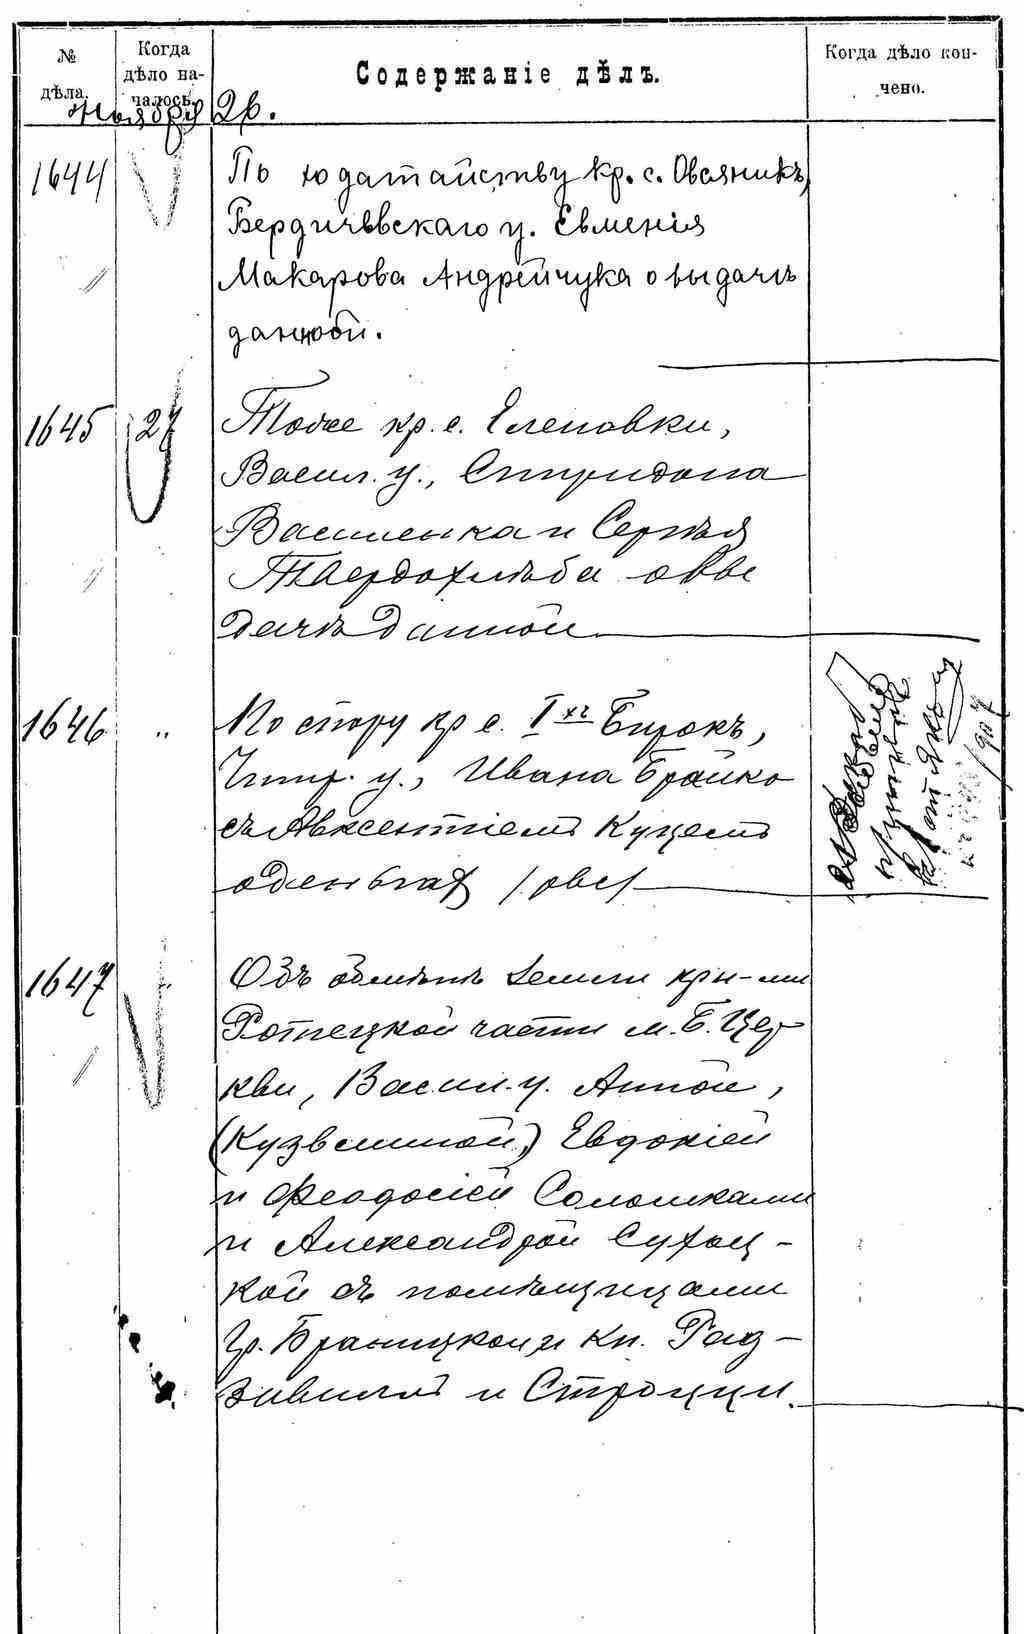 № дѣла.
Когда дѣло на-
чалось.
Содержаніе дѣлъ.
Когда дѣло кон-
чено.
Ноября 26.
1644
По ходатайству кр. с. Овсяникъ,
Бердичевскаго у. Евменія
Макарова Андрейчука о выдачѣ
данной.
1645
27
Тоже кр. с. Еленовки,
Васил. у., Спиридона
Василенка и Сергѣя
Твердохлѣба о вы
дачѣ данной
1646
"
По спору кр с. I хъ
Чигир. у., Ивана Бройко
съ Авксентіемъ Куцемъ
о деньгах
1647
"
Объ обмѣнѣ земли кр-ми
Ротецкой части м. Б. Цер-
кви, Васил. у. Анной,
(Кузьминой) Евдокіей
и Феодосіей Соломками
и Александрой Сухоц-
кой съ помѣщицами
Гр. Браницкой, и Кн. Рад-
зивиллъ и Строцци.
1907